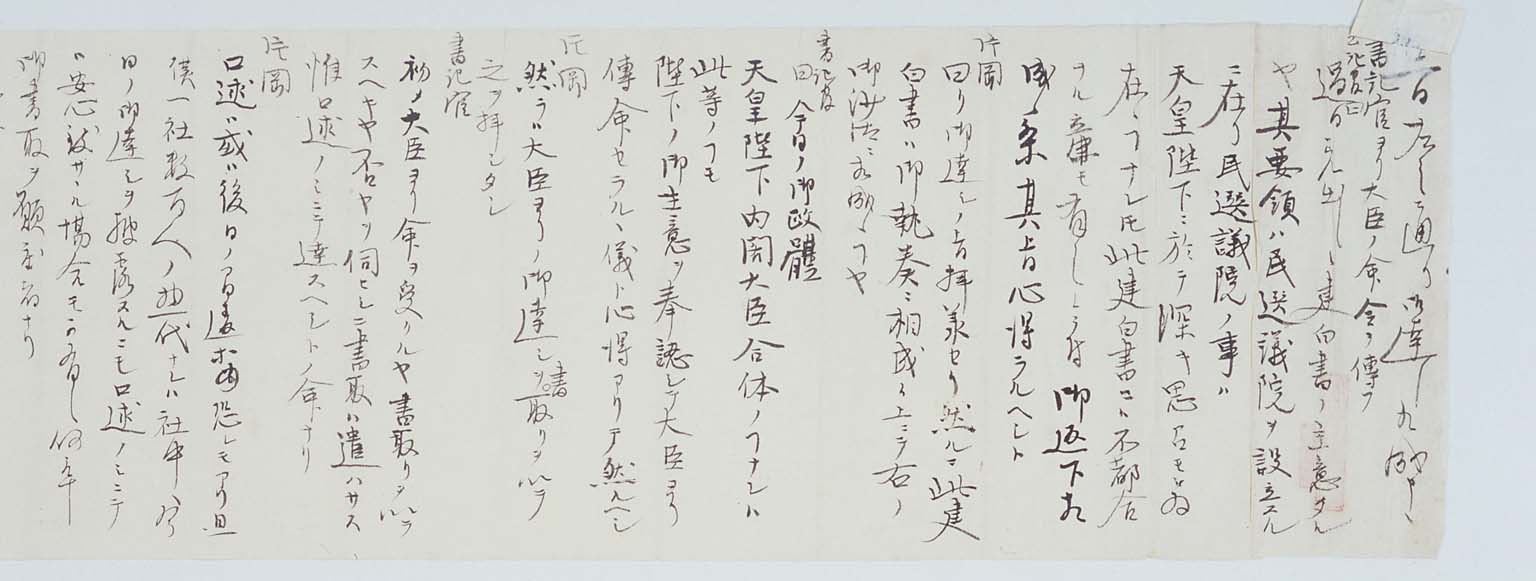 一日左之通リ御達シ相成申候
書記官ヨリ大臣ノ命令ヲ傳フ
書記官曰
過日差出シシ建白書ノ主意タル
ヤ其要領ハ民選議院ヲ設立スル
ニ在リ民選議院ノ事ハ
天皇陛下ニ於テ深キ思召モ被為
在コナレ𪜈此建白書ニハ不都合
ナル廉モ有之ニ付御返下相
成候条其旨心得ラルヘシト
片岡
曰リ御達シノ旨拝承セリ然ルニ此建
白書ハ御執奏ニ相成候上ニテ右ノ
御沙汰ニ相成候ヤ
書記官
曰今日ノ御政體
天皇陛下内閣大臣合体ノコナレハ
此等ノコモ
陛下ノ御主意ヲ奉認シテ大臣ヨリ
傳命セラルヽ儀ト心得アリテ然ルヘシ
片岡
然ラハ大臣ヨリノ御達シヲ書取リヲ以テ
之ヲ拝シタシ
書記官
初メ大臣ヨリ命ヲ受クルヤ書取リヲ以テ
スヘキヤ否ヤヲ伺ヒシニ書取ハ遣ハサス
惟口述ノミニテ達スヘシトノ命ナリ
片岡
口述ハ或ハ後日ノ間違等モ恐レモアリ且
僕一社数百人ノ惣代ナレハ社中ヘ今
日ノ御達シヲ披露スルニモ口述ノミニテ
ハ安心致サヽル場合モ可有之何卒
御書取ヲ願度者ナリ